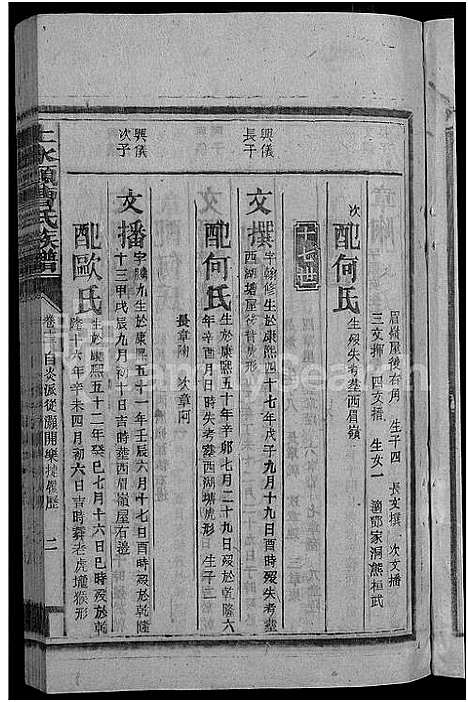 眉嶺屋後右角 生子四 長文撰 次文播
三文揮 四文播 生女一 適鄧家洞熊桓武
次
配何氏 生歿失考塟西眉嶺
十七世
興儀
長子
文撰 字翰修生於康熙四十七年戊子九月十九日酉時歿失考塟
西湖塘屋後背虎形
配何氏 生於康熙五十年辛卯七月二十九日歿於乾隆六
年辛酉月日時失考塟西湖塘虎形 生子二
長章陶 次章阿
興儀
次子
文播 字騰九生於康熙五十一年壬辰六月十七日酉時歿於乾隆
十三甲戌辰九月初十日吉時塟西眉嶺屋右邊
配歐氏 生於康熙五十二年癸巳七月十六日巳時歿於乾
隆十六年辛未四月初六日吉時葬老虎壠猴形
水頭曹氏族譜
自炎派從灝開樂捷履歷
二
FamilySearch